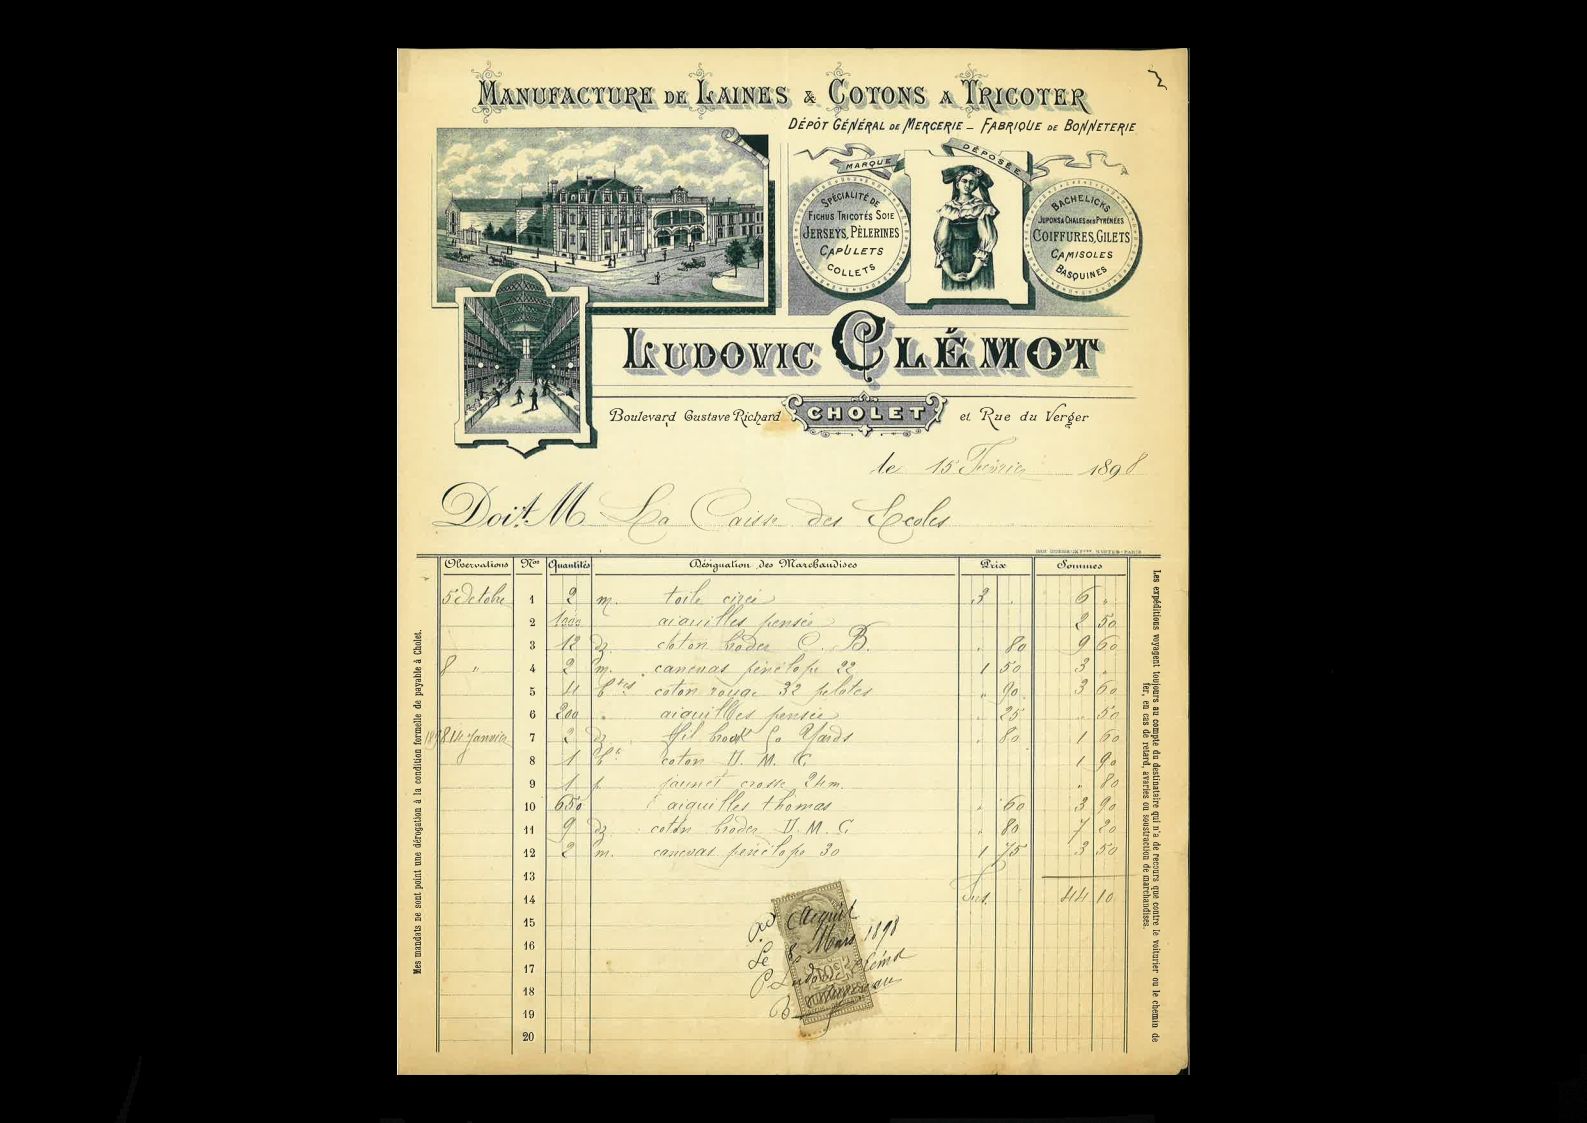 MANUFACTURE DE LAINES & COTONS A TRICOTER
DÉPÔT GÉNÉRAL DE MERCERIE – FABRIQUE DE BONNETERIE
MARQUE DÉPOSÉE
SPÉCIALITÉ DE
FICHUS TRICOTÉS SOIE
JERSEYS, PÈLERINES
CAPULETS
COLLETS
BACHELICKS
JUPONS & CHALES DES PYRÉNÉES
COIFFURES, GILETS
CAMISOLES
BASQUINES
LUDOVIC CLÉMOT
Boulevard Gustave Richard CHOLET et Rue du Verger
le 15 Février 1898
Doit M La Caisse des Ecoles
Observations Nos Quantités Désignation des Marchandises Prix Sommes
5 Octobre 1 2 m. toile cirée 3 . 6 "
2 1000 aiguilles pensée 2 50
3 12 dz coton broder C. B. " 80 9 60
8 " 4 2 m. canevas pénélope 22 1 50 3 "
5 4 btes coton rouge 32 pelotes " 90 3 60
6 200 " aiguilles pensée " 25 " 50
1898 14 Janvier 7 2 dz fil Yards " 80 1 60
8 1 bte coton D. M. C. 1 90
9 1 p 24 m. " 80
10 650 aiguilles thomas " 60 3 90
11 9 dz coton broder D. M. C " 80 7 20
12 2 m. canevas pénélope 30 1 75 3 50
13
14 44 10
15
16
17
18
19
20
Acquit
Le Mars 1898
P Ludovic Clémot
Mes mandats ne sont point une dérogation à la condition formelle de payable à Cholet.
Les expéditions voyagent toujours au compte du destinataire qui n'a de recours que contre le voiturier ou le chemin de
fer, en cas de retard, avaries ou soustraction de marchandises.